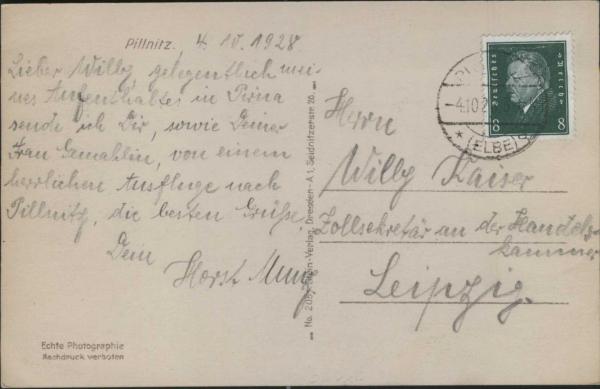 Pillnitz. 4. 10. 1928
Lieber Willy, gelegentlich mei-
nes Aufenthaltes in Pirna
sende ich Dir, sowie Deiner
Frau Gemahlin, von einem
herrlichen Ausfluge nach
Pillnitz, die besten Grüße.
Dein
Horst
Echte Photographie
Nachdruck verboten
Verlag, Dresden-A 1, Seidnitzerstr. 20.
Deutsches Reich
8 8
4.10.2
* (ELBE)
Herrn
Willy Kaiser
Zollsekretär an der Handels-
kammer
Leipzig.